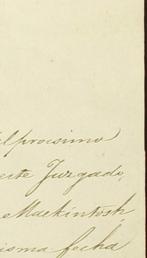 próximo
este Juzgado,
Mackintosh
isma fecha